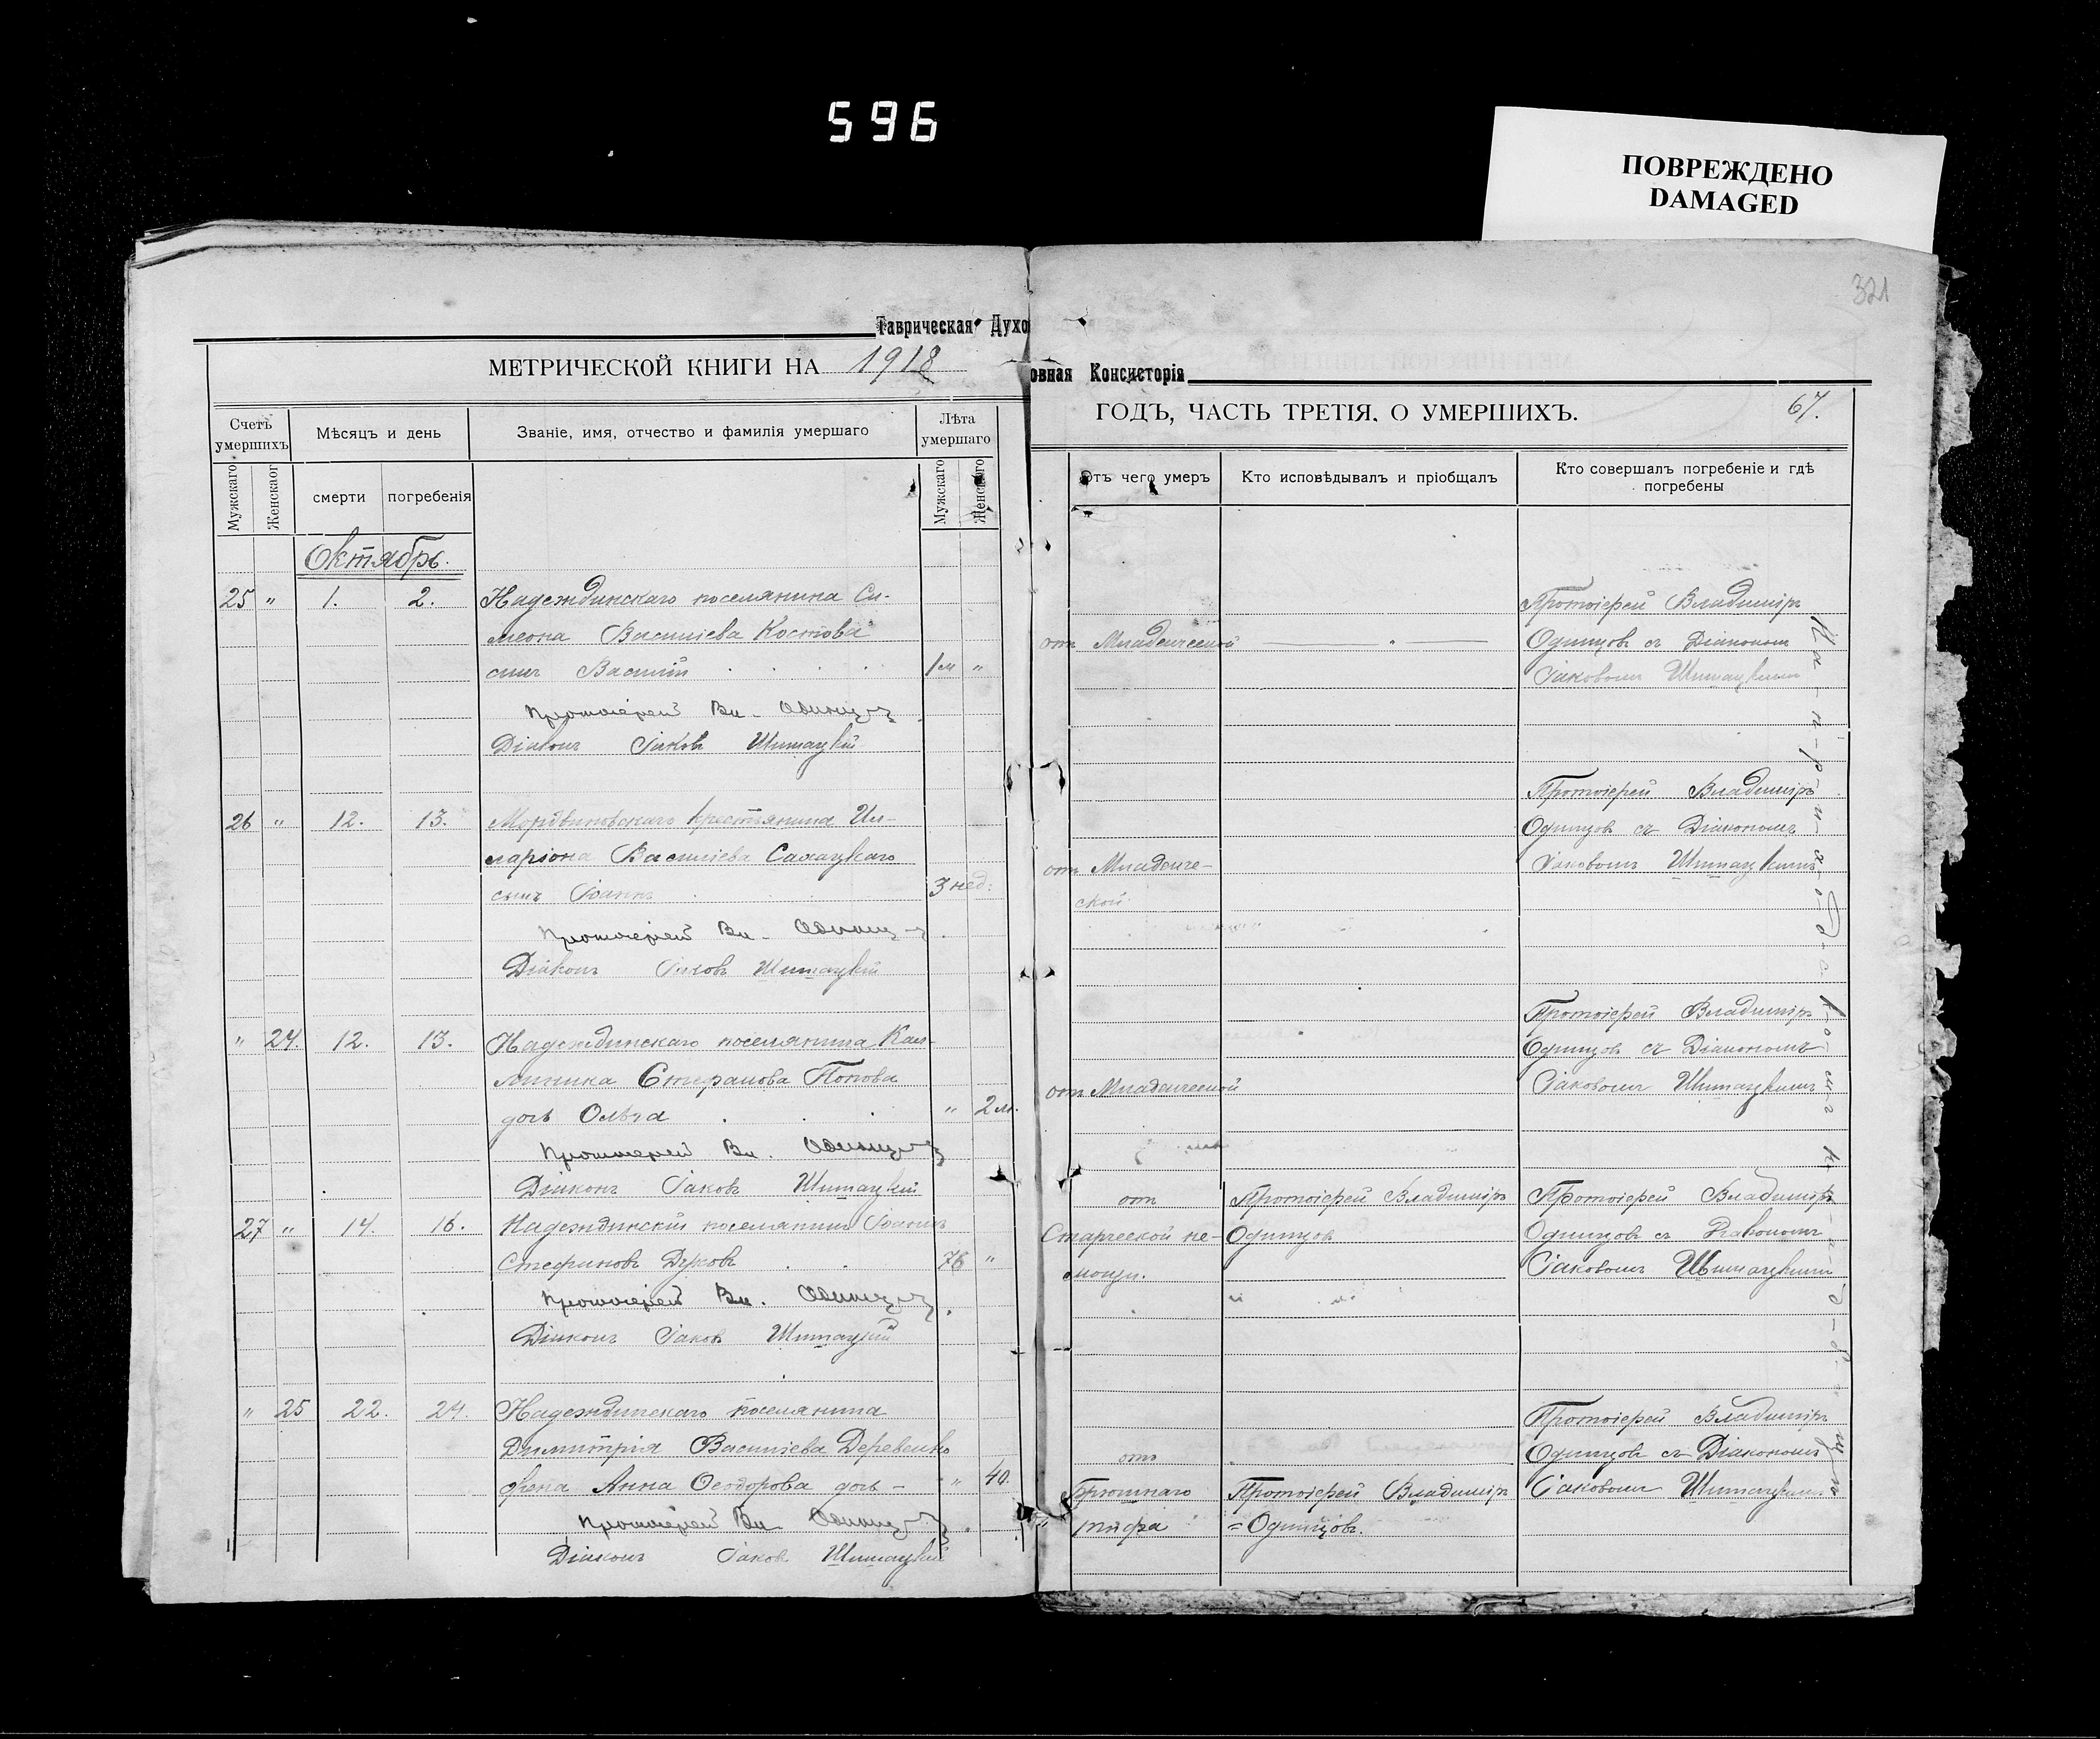 596
ПОВРЕЖДЕНО
DAMAGED
321
Таврическая Духо
овная Консисторія
МЕТРИЧЕСКОЙ КНИГИ НА 1918
ГОДЪ, ЧАСТЬ ТРЕТІЯ. О УМЕРШИХЪ.
67.
Счетъ умершихъ
Мѣсяцъ и день
Званіе, имя, отчество и фамилія умершаго
Лѣта умершаго
Мужскаго
Женскаог
смерти
погребенія
Мужскаго
Женскаго
Отъ чего умеръ
Кто исповѣдывалъ и пріобщалъ
Кто совершалъ погребеніе и гдѣ
погребены
Октябрь.
25 " 1. 2. Надеждинскаго поселянина Си-
меона Василіева Костова
сынъ Василій 1 м "
Протоіерей Вл. Одинцовъ
Діаконъ Іаковъ Шитацкій
отъ Младенческой
Протоіерей Владиміръ
Одинцовъ съ Діакономъ
Іаковомъ Шитацкимъ
26 " 12. 13. Мордвиновскаго крестьянина Ил-
ларіона Василіева Салацкаго
сынъ Іоаннъ 3 нед:
Протоіерей Вл. Одинцовъ
Діаконъ Іаковъ Шитацкій
отъ Младенче-
ской
Протоіерей Владиміръ
Одинцовъ съ Діакономъ
Іаковомъ Шитацкимъ
" 24. 12. 13. Надеждинскаго поселянина Кал-
линика Стефанова Попова
дочь Ольга " 2 м.
Протоіерей Вл. Одинцовъ
Діаконъ Іаковъ Шитацкій
отъ Младенческой
Протоіерей Владиміръ
Одинцовъ съ Діакономъ
Іаковомъ Шитацкимъ
27 " 14. 16. Надеждинскій поселянинъ Іоаннъ
Стефановъ Дуковъ 76 "
Протоіерей Вл. Одинцовъ
Діаконъ Іаковъ Шитацкій
отъ
Старческой не-
мощи.
Протоіерей Владиміръ
Одинцовъ
Протоіерей Владиміръ
Одинцовъ съ Діакономъ
Іаковомъ Шитацкимъ
" 25 22. 24. Надеждинскаго поселянина
Димитрія Василіева Деревенко
жена Анна Ѳеодорова дочь - " 40.
Протоіерей Вл. Одинцовъ
Діаконъ Іаковъ Шитацкій
отъ
Брюшнаго
тифа
Протоіерей Владиміръ
= Одинцовъ.
Протоіерей Владиміръ
Одинцовъ съ Діакономъ
Іаковомъ Шитацкимъ
На - п-р-и-х-о-д-с-к-о-м-ъ к-л-а-д-б-и-щ-ѣ